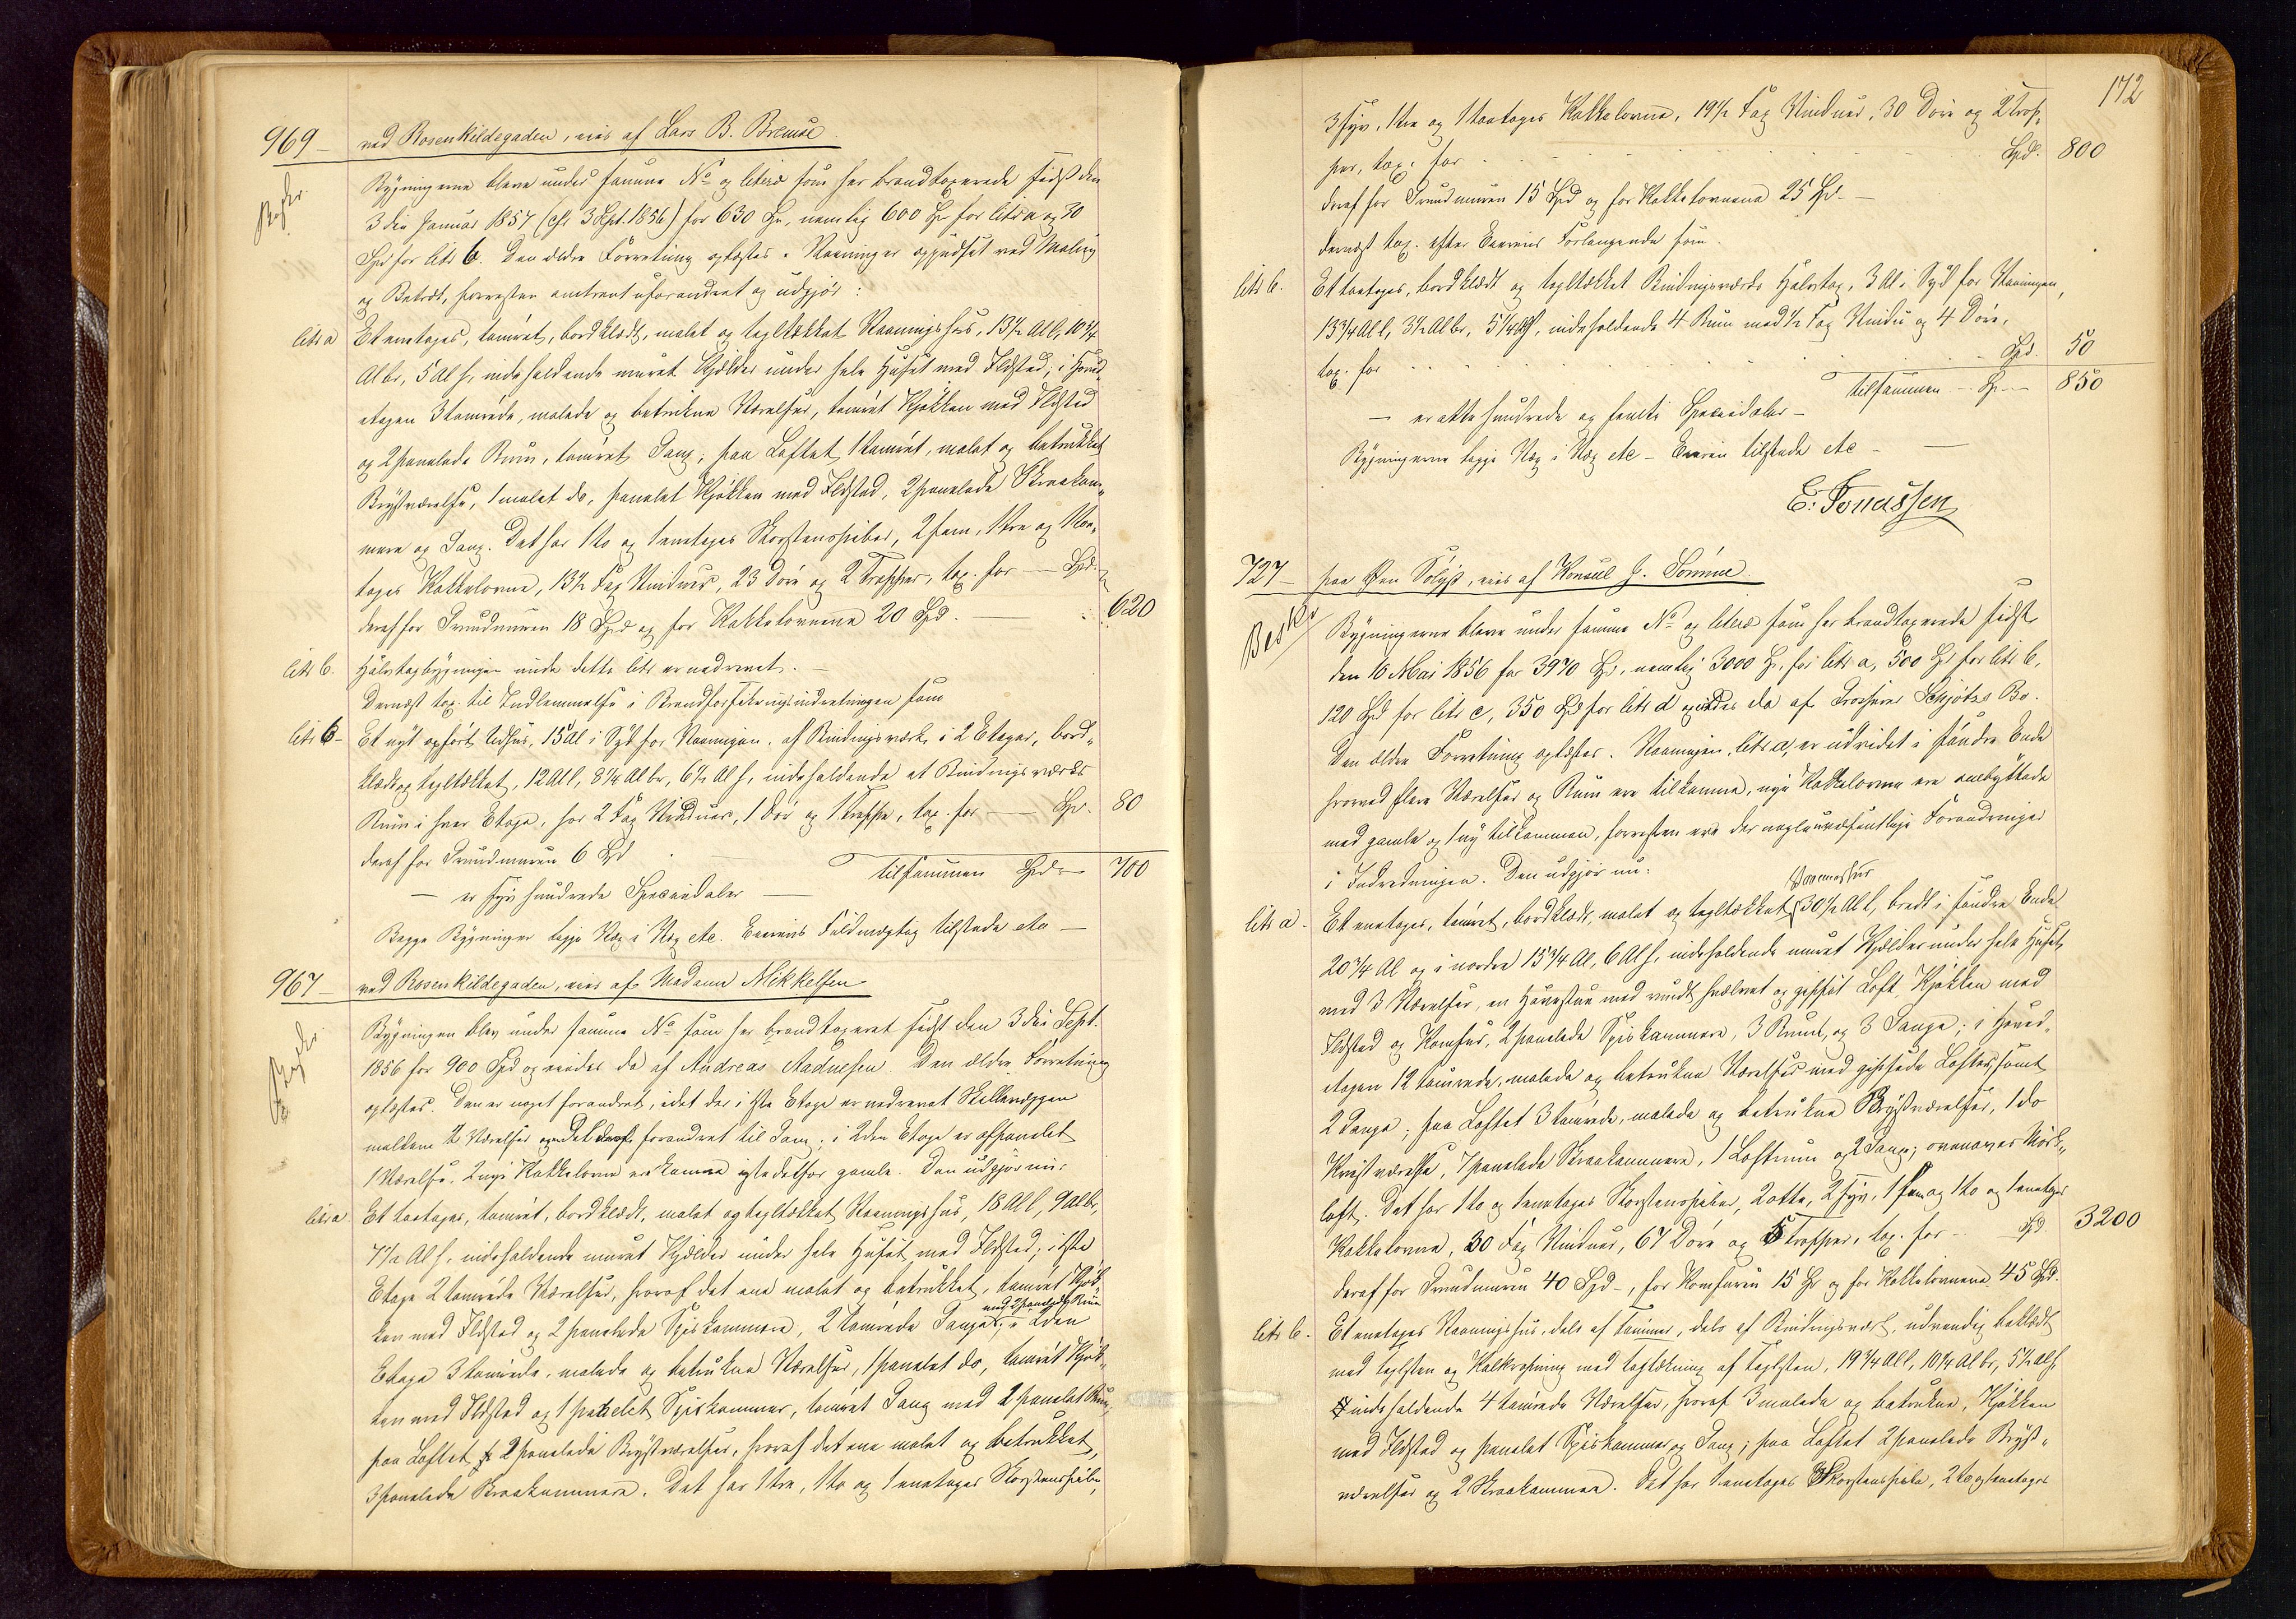 969 – ved Rosenkildegaden, eies af Lars B. Bremse
Bygningerne bleve under samme No og litera som her brandtaxerede sidst den
3die Januar 1857 (cfr 3 Spt. 1856) for 630 Spd, nemlig 600 Spd for litr a og 30
Spd for litr b. Den ældre Forretning oplæstes. Vaaningen er oppudset ved Maling
og Betræk, forresten omtrent uforandret og udgjør:
litr a Et enetages, tømret, bordklædt, malet og tegltækket Vaaningshus, 13½ Al l, 10¾
Al br, 5 Al h, indeholdende muret Kjælder under hele Huset med Ildsted; i Hoved-
etagen 3 tømrede, malede og betrukne Værelser, tømret Kjøkken med Ildsted
og 2 panelede Rum, tømret Gang; paa Loftet 1 tømret, malet og betrukket
Kvistværelse, 1 malet do, panelet Kjøkken med Ildsted, 2 panelede Skraakam-
mere og Gang. Det har 1 to og 1 enetages Skorstenspiber, 2 fem, 1 tre og 1 en-
tages Kakkelovne, 13½ Fag Vinduer, 23 Døre og 2 Trapper, tax. for — Spd.
deraf for Grundmuren 18 Spd og for Kakkelovnene 20 Spd. — 620
litr b. Halvtagbygningen under dette litr er nedrevet. –
Dernæst tax. til Indlemmelse i Brandforsikringsindretningen som
litr b – Et nyt opført Udhus, 15 Al i Syd for Vaaningen, af Bindingsværk i 2 Etager, bord-
klædt og tegltækket, 12 Al l, 8¼ Al br, 6½ Al h, indeholdende et Bindingsværks
Rum i hver Etage, har 2 Fag Vinduer, 1 Dør og 1 Trappe, tax. for — Spd. 80
deraf for Grundmuren 6 Spd
tilsammen Spd — 700
— er syv hundrede Speciedaler —
Begge Bygninger ligge Væg i Væg etc. Eierens Fuldmægtig tilstede etc —
967 – ved Rosenkildegaden, eies af Madame Mikkelsen
Bygningen blev under samme No som her brandtaxeret sidst den 3die Sept.
1856 for 900 Spd og eiedes da af Andreas Aadnesen. Den ældre Forretning
oplæstes. Den er noget forandret, idet der i 1ste Etage er nedrevet Skillevæggen
mellem 2 Værelser og en Del deraf forandret til Gang; i 2den Etage er afpanelet
1 Værelse. 2 nye Kakkelovne ere komne istedetfor gamle. Den udgjør nu:
litr a Et toetages, tømret, bordklædt, malet og tegltækket Vaaningshus, 18 Al l, 9 Al br,
7½ Al h, indeholdende muret Kjælder under hele Huset med Ildsted; i 1ste
Etage 2 tømrede Værelser, hvoraf det ene malet og betrukket, tømret Kjøk-
ken med Ildsted og 2 panelede Spiskammere, 2 tømrede Gange med 2 panelede Rum; i 2den
Etage 3 tømrede, malede og betrukne Værelser, 1 panelet do, tømret Kjøk-
ken med Ildsted og 1 panelet Spiskammer, tømret Gang med 2 panelet Rum,
paa Loftet 2 panelede Kvistværelser, hvoraf det ene malet og betrukket,
3 panelede Skraakammere. Det har 1 tre, 1 to og 1 enetages Skorstenspibe,
172
3 fyr, 1 tre og 1 toetages Kakkelovne, 19½ Fag Vinduer, 30 Døre og 2 Trap-
per, tax. for Spd. 800
deraf for Grundmuren 15 Spd og for Kakkelovnene 25 Spd. —
dernæst tax. efter Eierens Forlangende som
litr b. Et toetages, bordklædt og tegltækket Bindingsværks Halvtag, 3 Al i Syd for Vaaningen,
13¾ Al l, 3½ Al br, 5¼ Al h, indeholdende 4 Rum med ½ Fag Vindu og 4 Døre,
tax. for Spd. 50
tilsammen — Spd — 850
— er otte hundrede og femti Speciedaler –
Bygningerne ligge Væg i Væg etc – Eieren tilstede etc –
E. Tonassen
727 – paa Øen Sølyst, eies af Konsul J. Sømme
Beskr
Bygningerne bleve under samme No og litera som her brandtaxerede sidst
den 16 Mai 1856 for 3970 Spd, nemlig 3000 Spd for litr a, 500 Spd for litr b,
120 Spd for litr c, 350 Spd for litr d og eiedes da af Grosserer Schjøtzes Bo.
Den ældre Forretning oplæstes. Vaaningen, litr a, er udvidet i søndre Ende
hvorved flere Værelser og Rum ere tilkomne, nye Kakkelovne ere ombyttede
med gamle og 1 ny tilkommen, forresten ere der nogle uvæsentlige Forandringer
i Indredningen. Den udgjør nu:
litr a. Et enetages, tømret, bordklædt, malet og tegltækket Vaaneshus 30½ Al l, bredt i søndre Ende
20¾ Al og i nordre 15¾ Al, 6 Al h, indeholdende muret Kjælder under hele Huset
med 3 Værelser, en Havestue med rundt hvælvet og gipset Loft, Kjøkken med
Ildsted og Komfur, 2 panelede Spiskammere, 3 Rum, og 3 Gange; i Hoved-
etagen 12 tømrede, malede og betrukne Værelser med gipsede Lofter, samt
2 Gange; paa Loftet 3 tømrede, malede og betrukne Kvistværelser, 1 do
Kvistværelse, 7 panelede Skraakammere, 1 Loftrum og 2 Gange; ovenover Mørk-
loft. Det har 1 to og 1 enetages Skorstenspibe, 2 otte, 2 syv, 1 fem og 1 to og 1 enetages
Kakkelovne, 30 Fag Vinduer, 67 Døre og 5 Trapper, tax. for – Spd 3200
deraf for Grundmuren 40 Spd –, for Komfuren 15 Spd og for Kakkelovnene 45 Spd.
litr b. Et enetages Vaaningshus, dels af Tømmer, dels af Bindingsværk, udvendig beklædt
med Teglsten og Kalkrapning med Tagtækning af Teglsten, 19¾ Al l, 10¼ Al br, 5½ Al h
indeholdende 4 tømrede Værelser, hvoraf 3 malede og betrukne, Kjøkken
med Ildsted og panelet Spiskammer og Gang; paa Loftet 2 panelede Kvist-
værelser og 2 Skraakammere. Det har 1 enetages Skorstenspibe, 2 to og 1 enetages